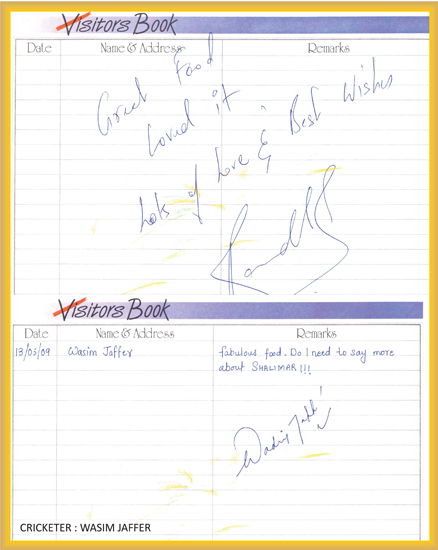 Visitors Book
Date Name & Address Remarks
Great Food
Loved it
Lots of Love & Best Wishes
Visitors Book
Date Name & Address Remarks
13/05/09 Wasim Jaffer fabulous food. Do I need to say more
about SHALIMAR!!!
CRICKETER : WASIM JAFFER